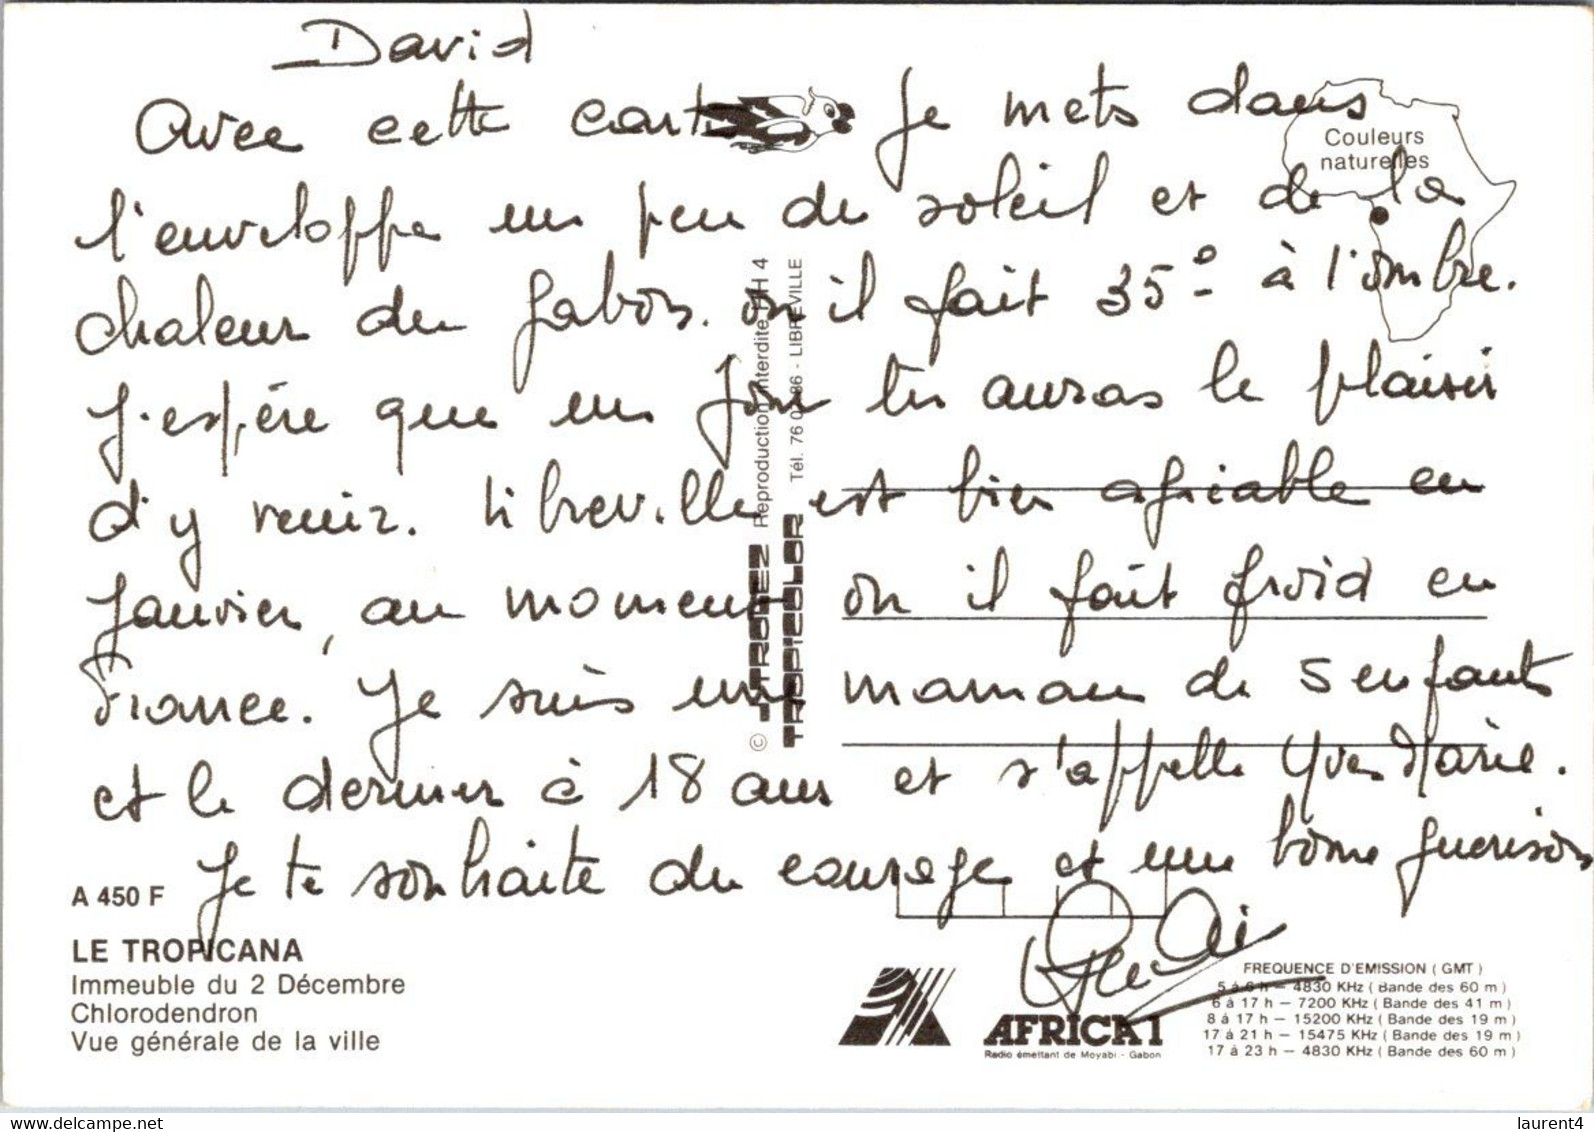 David
Avec cette carte je mets dans
l'enveloppe un peu de soleil et de la
chaleur du Gabon. où il fait 35° à l'ombre.
J'espère que un jour tu auras le plaisir
d'y venir. Libreville est bien agréable en
Janvier, au moment où il fait froid en
France. Je suis une maman de 5 enfants
et le dernier à 18 ans et s'appelle Yves Marie.
Je te souhaite du courage et une bonne guérison
Couleurs
naturelles
Reproduction interdite
LIBREVILLE
© TRODEZ
TROPICOLOR
A 450 F
LE TROPICANA
Immeuble du 2 Décembre
Chlorodendron
Vue générale de la ville
AFRICA 1
Radio émettant de Moyabi - Gabon
FREQUENCE D'EMISSION ( GMT )
5 à 6 h – 4830 KHz ( Bande des 60 m )
6 à 17 h – 7200 KHz ( Bande des 41 m )
8 à 17 h – 15200 KHz ( Bande des 19 m )
17 à 21 h – 15475 KHz ( Bande des 19 m )
17 à 23 h – 4830 KHz ( Bande des 60 m )
laurent4